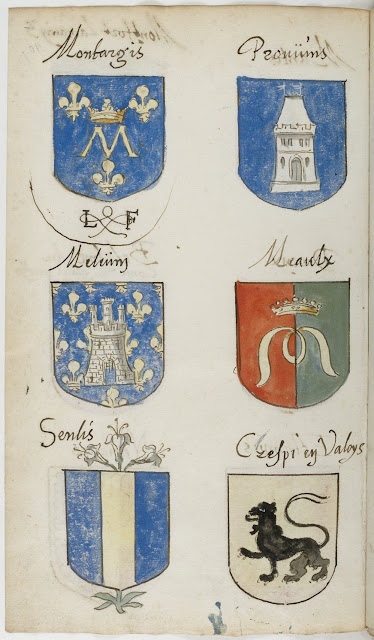 Montargis
Provüins
M
L F
Melüns
Meaulx
Senlis
Crespi en Valoys